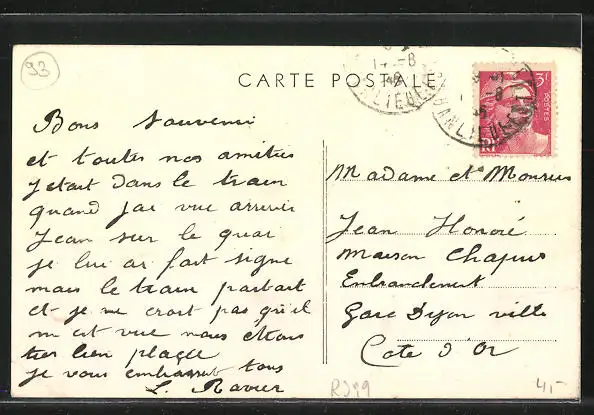 93
CARTE POSTALE
3F
POSTES
RF
BANLIEUE
Bons souvenir
et toutes nos amities
J etait dans le train
quand jai vue arriver
Jean sur le quai
je lui ai fait signe
mais le train partait
et je ne croit pas qu'il
m est vue nous etions
tres bien placee
je vous embrassent tous
L. Ravier
Madame et Monsieur
Jean Honoré
maison Chapuis
Embranchement
Gare Dijon ville
Cote d'Or
RJ99
4,-